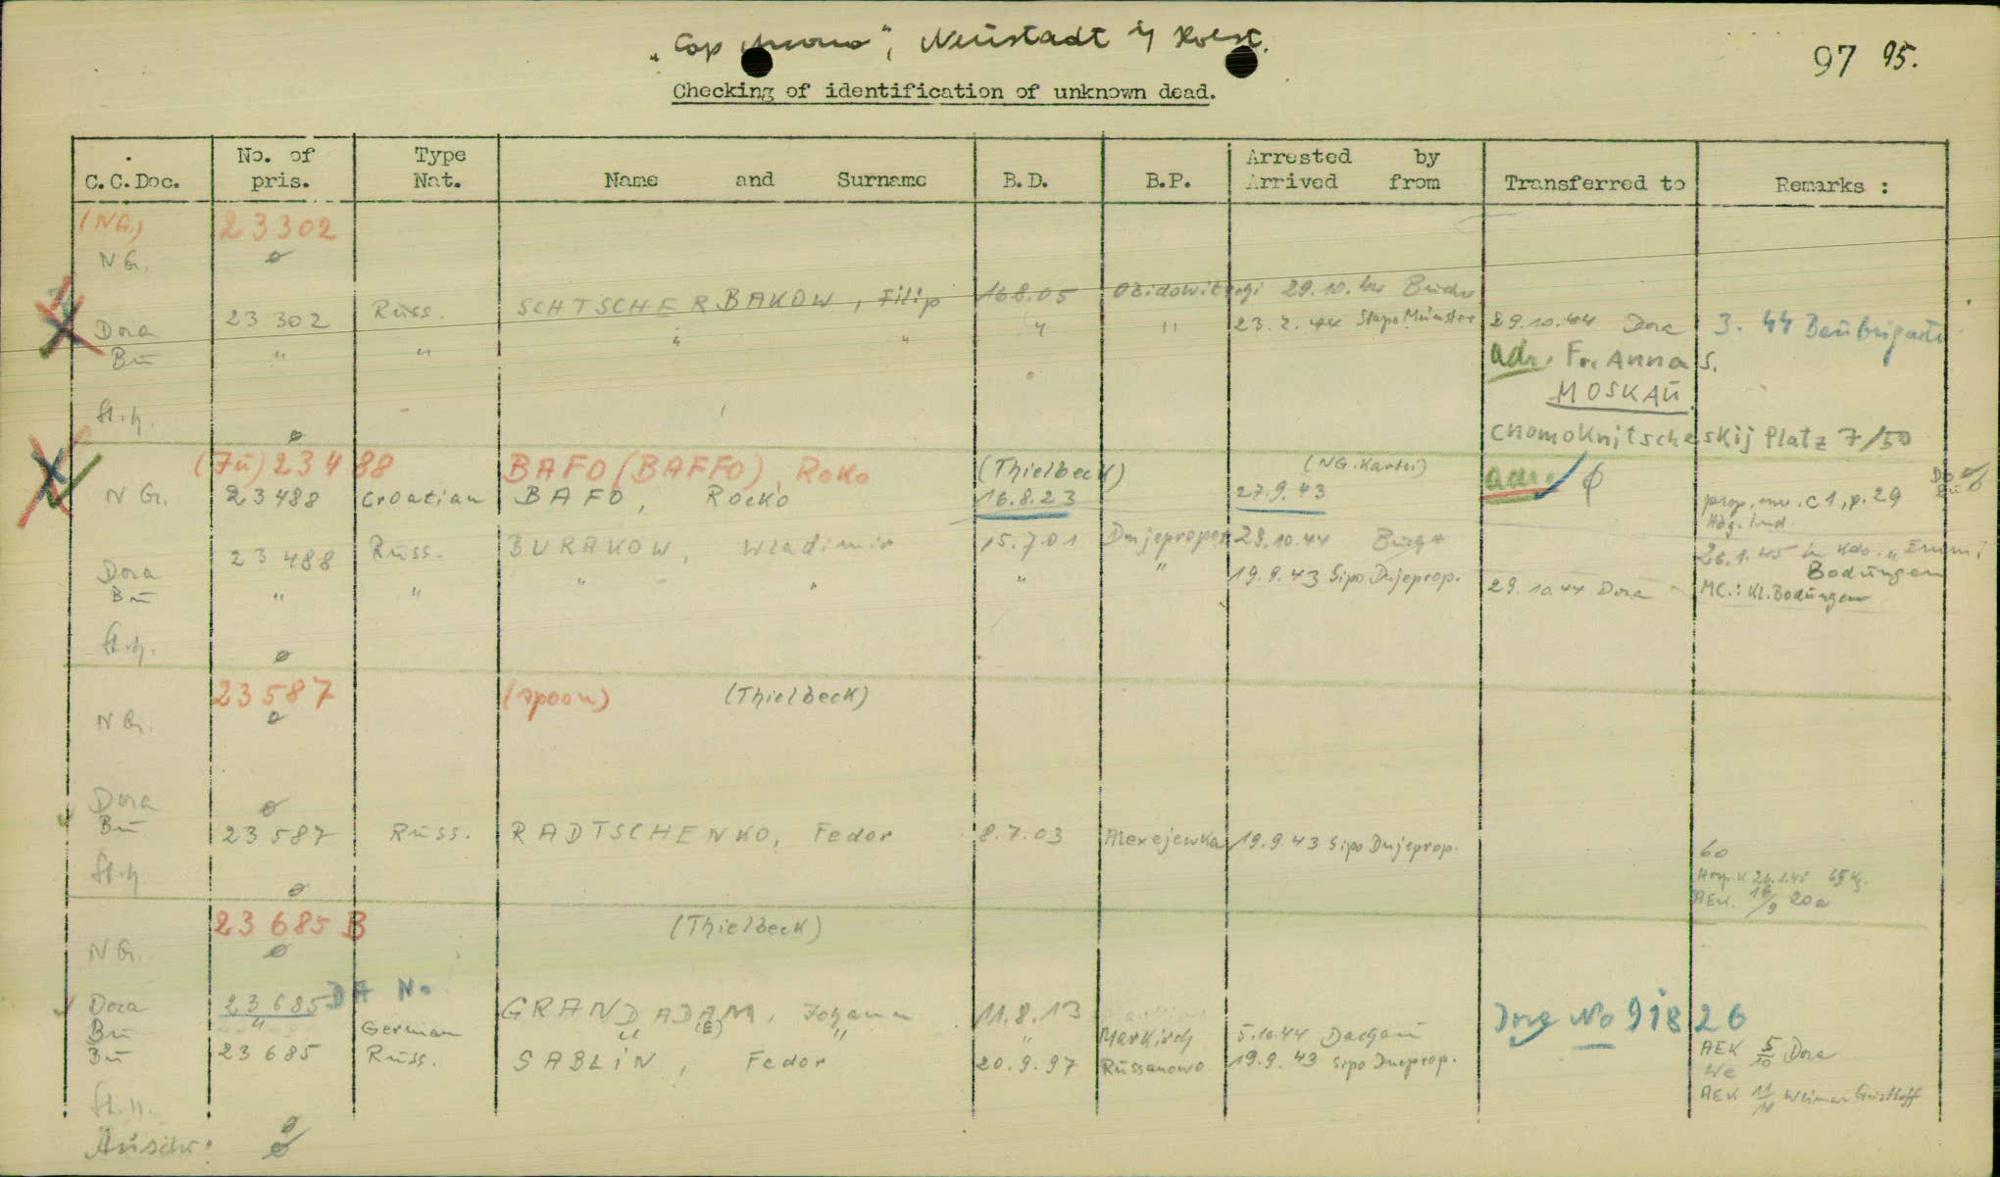 "Cap Arcona", Neustadt i/ Holst.
97 95.
Checking of identification of unknown dead.
C.C.Doc. No. of pris. Type Nat. Name and Surname B.D. B.P. Arrested by Arrived from Transferred to Remarks :
(NG.) 23302
NG. ø
23302 Russ. SCHTSCHERBAKOW, Filip 16.8.05 29.10.44
Dora " 23.2.44 Stapo Münster 29.10.44 Dora 3. SS Baubrigade
Bu " " " " "
adr. Fr. Anna S.
MOSKAU.
St.h. ø
Chomoknitscheskij Platz 7/50
(Ju) 23488 BAFO (BAFFO), Roko (Thielbeck) (NG. Kartei) adr. ø
NG. 23488 Croatian BAFO, Rocko 16.8.23 27.9.43 prop. env. c1, p. 29
23488 Russ. BURAKOW, Wladimir 15.7.01 Dnjeproper 29.10.44 Buch
26.1.45 Kdo. "Emmi
Dora " " " " 19.9.43 Sipo Dnjeprop. Bodungen
Bu " " 29.10.44 Dora MC.: Kl. Bodungen
St.h. ø
23587 (spoon) (Thielbeck)
NG. ø
Dora ø
Bu 23587 Russ. RADTSCHENKO, Fedor 8.7.03 Alexejewka 19.9.43 Sipo Dnjeprop.
60
St.h. ø
26.1.45 65 Kg.
AEK. 18/9 20a
23685 B (Thielbeck)
NG. ø
DA No
Dora 23685 GRANDADAM, Johann 11.8.13 918 26
Bu " German (E) " " " Markirch 5.10.44 Dachau
Bu 23685 Russ. SABLIN, Fedor 20.9.97 Russanowo 19.9.43 Sipo Dneprop. AEK 5/10 Dora
We
AEK 11/11 Weimar Gustloff
St.h. ø
Auschw. ø